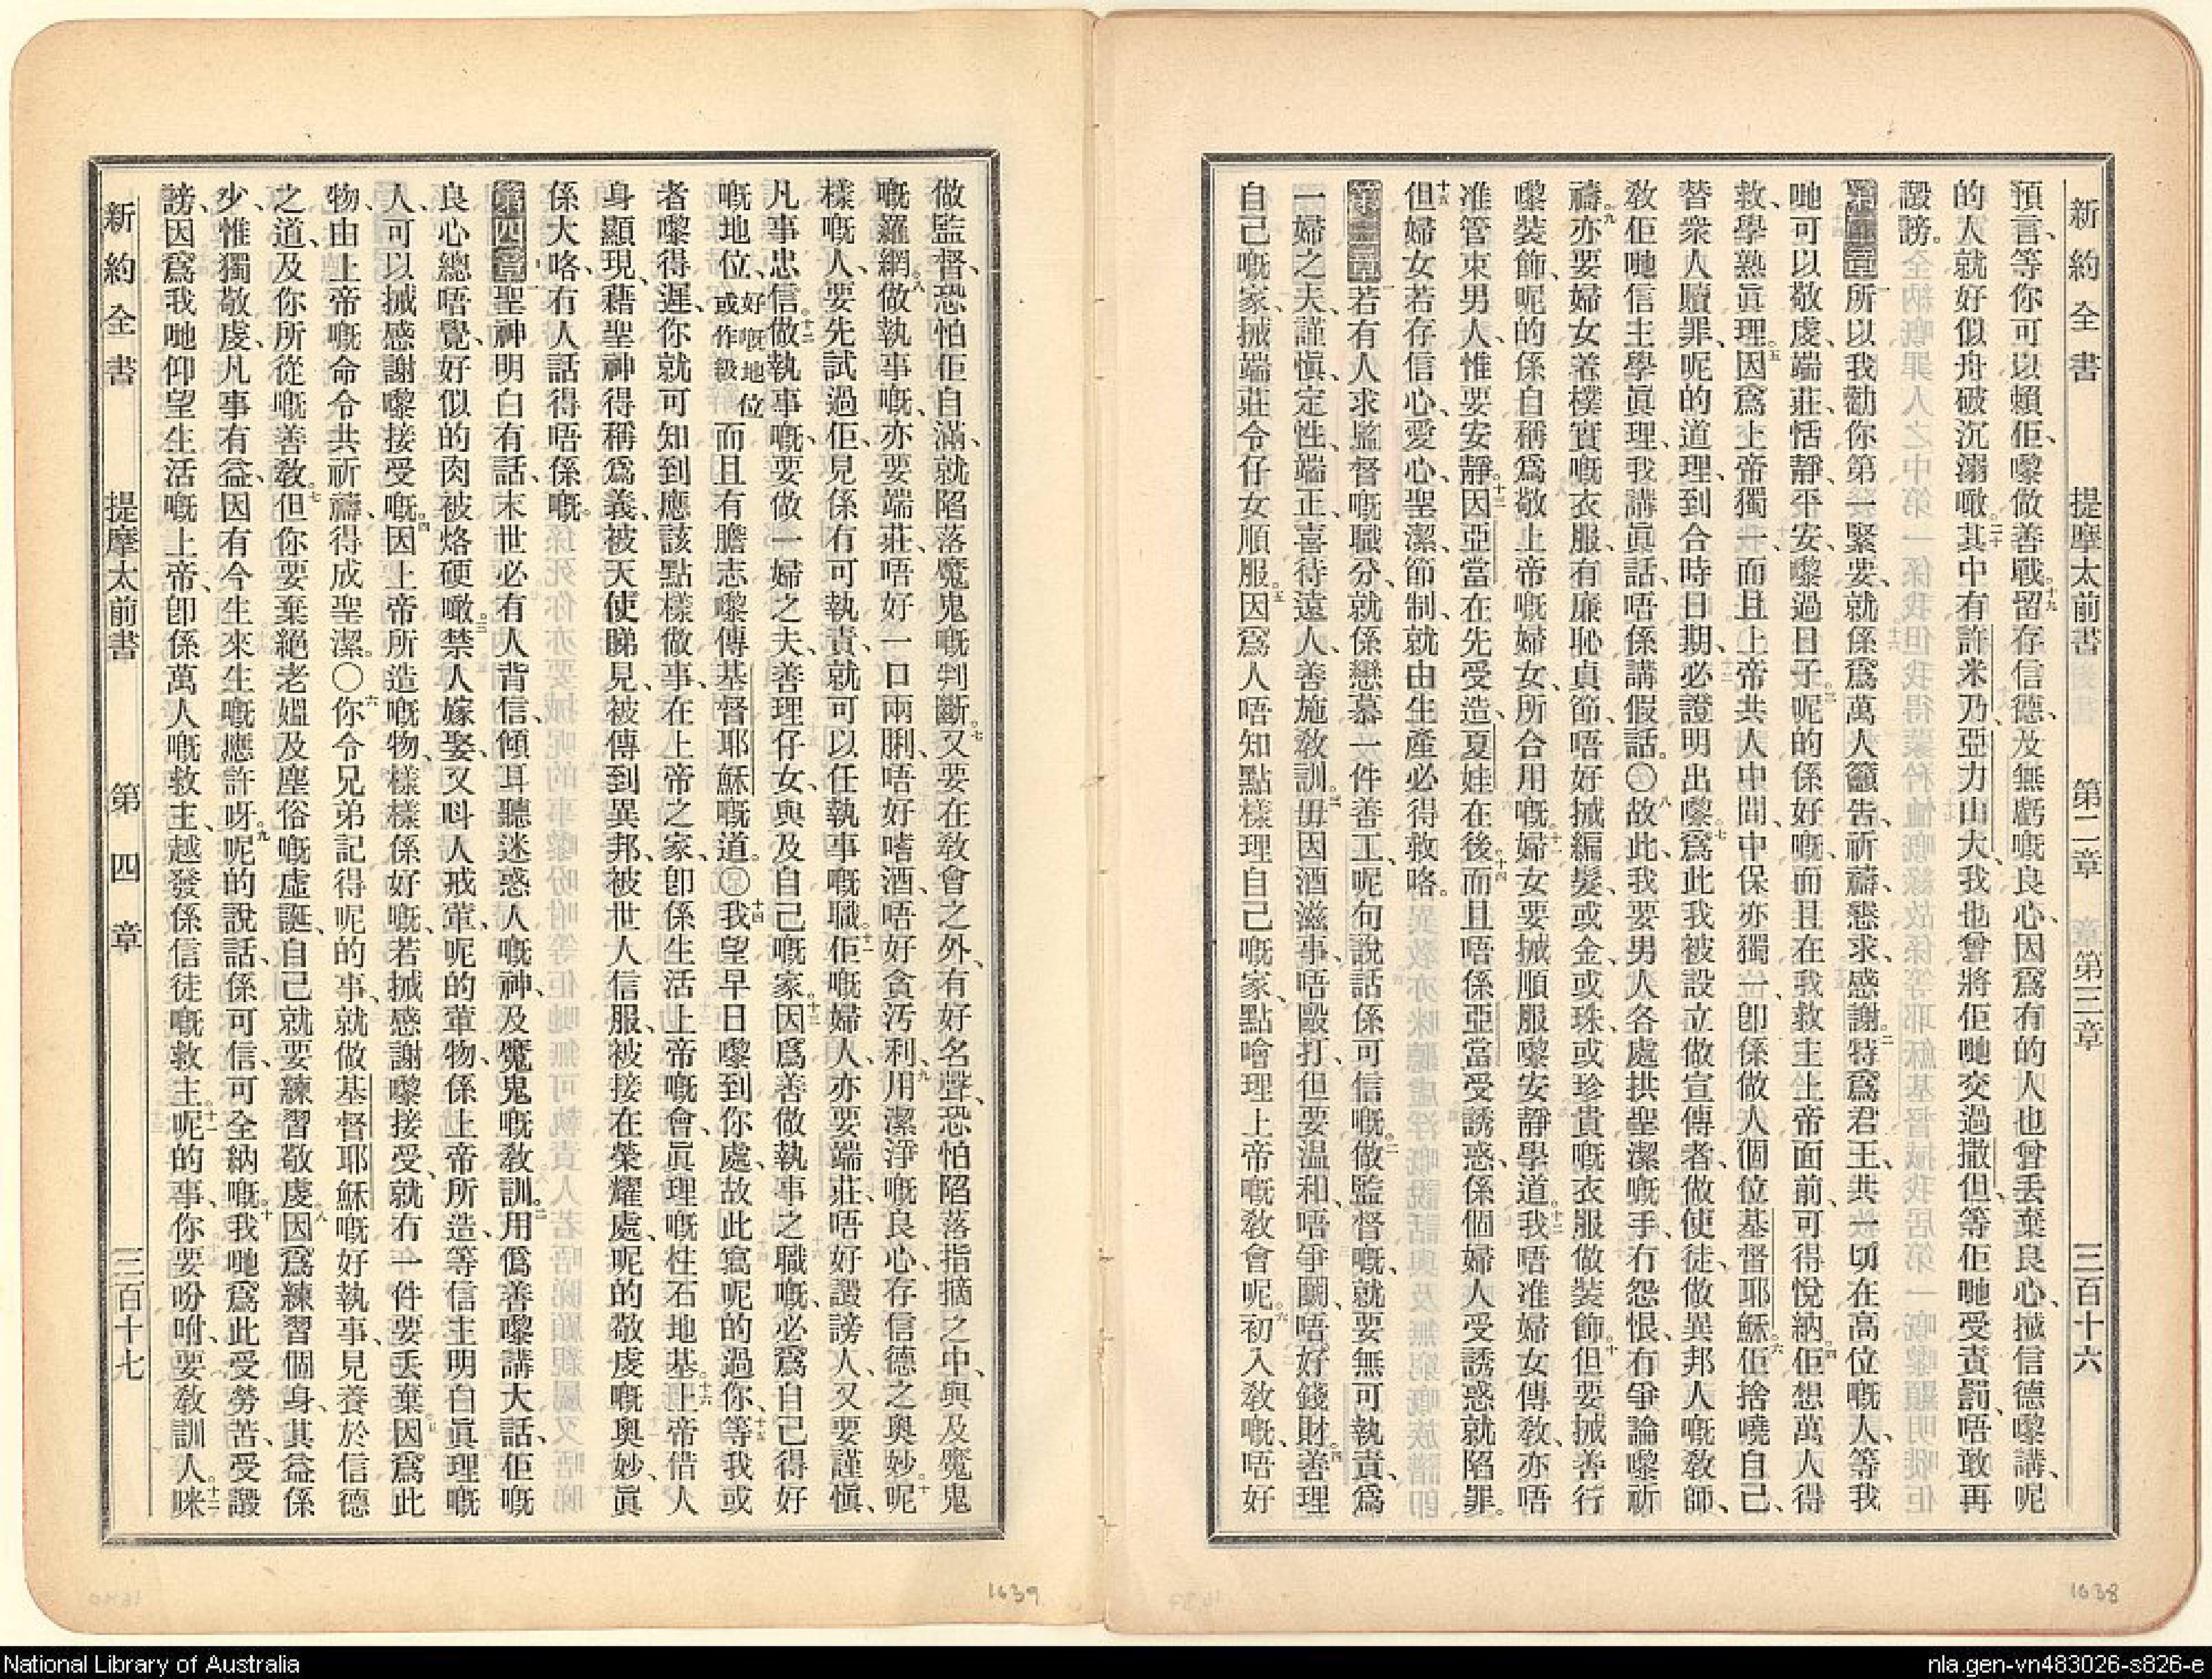 新約全書 提摩太前書 第二章 第三章 三百十六
預言、等你可以賴佢、嚟做善戰。十九留存信德、及無虧嘅良心、因爲有的人也曾丢棄良心、搣信德嚟講、呢
的人就好似舟破沉溺噉。二十其中有許米乃、亞力山大、我也曾將佢哋交過撒但、等佢哋受責罰、唔敢再
譭謗。
第二章一所以我勸你第一緊要、就係爲萬人籲告、祈禱、懇求、感謝。二特爲君王、共一切在高位嘅人、等我
哋可以敬虔、端莊、恬靜、平安、嚟過日子。三呢的係好嘅、而且在我救主上帝面前、可得悅納。四佢想萬人得
救、學熟眞理。五因爲上帝獨一、而且上帝共人中間、中保亦獨一、卽係做人個位基督耶穌。六佢捨嘵自己、
替衆人贖罪、呢的道理、到合時日期、必證明出嚟。七爲此我被設立做宣傳者、做使徒、做異邦人嘅敎師、
敎佢哋信主學眞理、我講眞話、唔係講假話。〇八故此、我要男人各處拱聖潔嘅手、冇怨恨、冇爭論嚟祈
禱。九亦要婦女着樸實嘅衣服、有廉恥、貞節、唔好搣編髮、或金、或珠、或珍貴嘅衣服做裝飾。十但要搣善行
嚟裝飾、呢的係自稱爲敬上帝嘅婦女、所合用嘅。十一婦女要搣順服嚟安靜學道。十二我唔准婦女傳敎、亦唔
准管束男人、惟要安靜。十三因亞當在先受造、夏娃在後。十四而且唔係亞當受誘惑、係個婦人受誘惑就陷罪。
十五但婦女若存信心、愛心、聖潔、節制、就由生產必得救咯。
第三章一若有人求監督嘅職分、就係戀慕一件善工、呢句說話係可信嘅。二做監督嘅、就要無可執責、爲
一婦之夫、謹愼、定性、端正、喜待遠人、善施敎訓。三毋因酒滋事、唔毆打、但要温和、唔爭鬭、唔好錢財。四善理
自己嘅家、搣端莊令仔女順服。五因爲人唔知點樣理自己嘅家、點噲理上帝嘅敎會呢。六初入敎嘅、唔好
做監督、恐怕佢自滿、就陷落魔鬼嘅判斷。七又要在敎會之外、有好名聲、恐怕陷落指摘之中、與及魔鬼
嘅羅網。八做執事嘅、亦要端莊、唔好一口兩脷、唔好嗜酒、唔好貪汚利、九用潔淨嘅良心、存信德之奥妙。十呢
樣嘅人、要先試過佢、見係冇可執責、就可以任執事嘅職。十一佢嘅婦人、亦要端莊、唔好譭謗人、又要謹愼、
凡事忠信。十二做執事嘅、要做一婦之夫、善理仔女、與及自己嘅家。十三因爲善做執事之職嘅、必爲自己得好
嘅地位、好嘅地位或作級而且有膽志嚟傳基督耶穌嘅道。〇十四我望早日嚟到你處、故此寫呢的過你、十五等我或
者嚟得遲、你就可知到應該點樣做事、在上帝之家、卽係生活上帝嘅會、眞理嘅柱石地基。十六上帝借人
身顯現、藉聖神得稱爲義、被天使睇見、被傳到異邦、被世人信服、被接在榮耀處、呢的敬虔嘅奥妙、眞
係大咯、冇人話得唔係嘅。
第四章一聖神明白有話、末世必有人背信、傾耳聽迷惑人嘅神、及魔鬼嘅敎訓。二用僞善嚟講大話、佢嘅
良心總唔覺、好似的肉被烙硬噉。三禁人嫁娶、又呌人戒葷、呢的葷物、係上帝所造、等信主明白眞理嘅
人、可以搣感謝嚟接受嘅。四因上帝所造嘅物、樣樣係好嘅、若搣感謝嚟接受、就冇一件要丢棄。五因爲此
物、由上帝嘅命令共祈禱、得成聖潔。〇六你令兄弟記得呢的事、就做基督耶穌嘅好執事、見養於信德
之道、及你所從嘅善敎。七但你要棄絕老媼及塵俗嘅虛誕、自己就要練習敬虔。八因爲練習個身、其益係
少、惟獨敬虔、凡事有益、因有今生來生嘅應許呀。九呢的說話、係可信、可全納嘅。十我哋爲此受勞苦、受譭
謗、因爲我哋仰望生活嘅上帝、卽係萬人嘅救主、越發係信徒嘅救主。十一呢的事、你要吩咐、要敎訓人。十二咪
新約全書 提摩太前書 第四章 三百十七
1639
1638
National Library of Australia
nla.gen-vn483026-s826-e